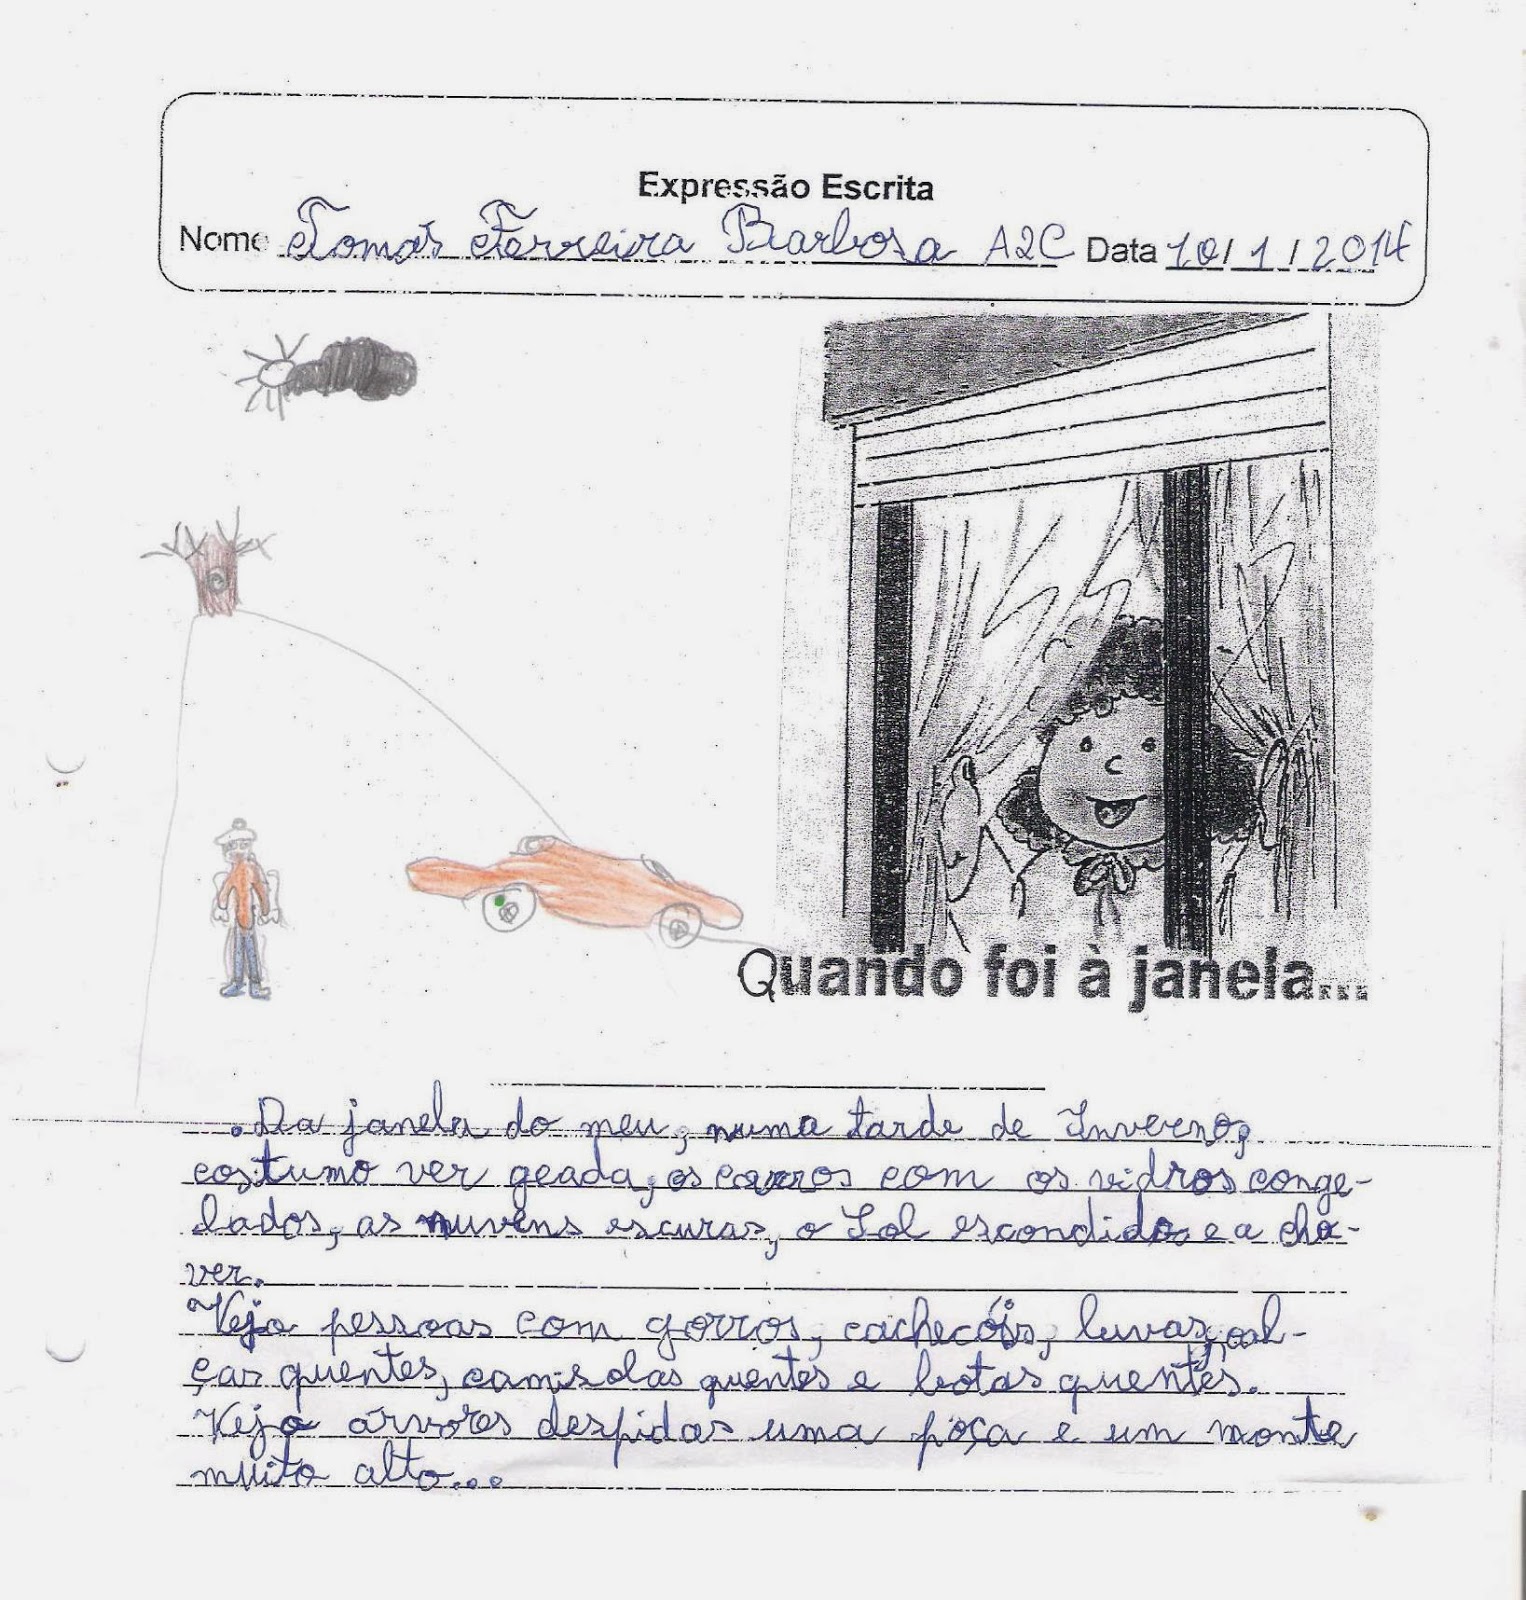 Expressão Escrita
Nome Tomás Ferreira Barbosa A2C Data 10/1/2014
Quando foi à janela...
Da janela do meu, numa tarde de Inverno,
costumo ver geada, os carros com os vidros conge-
lados, as nuvens escuras, o Sol escondido e a cho-
ver.
Vejo pessoas com gorros, cachecóis, luvas, cal-
ças quentes, camisolas quentes e botas quentes.
Vejo árvores despidas uma poça e um monte
muito alto...